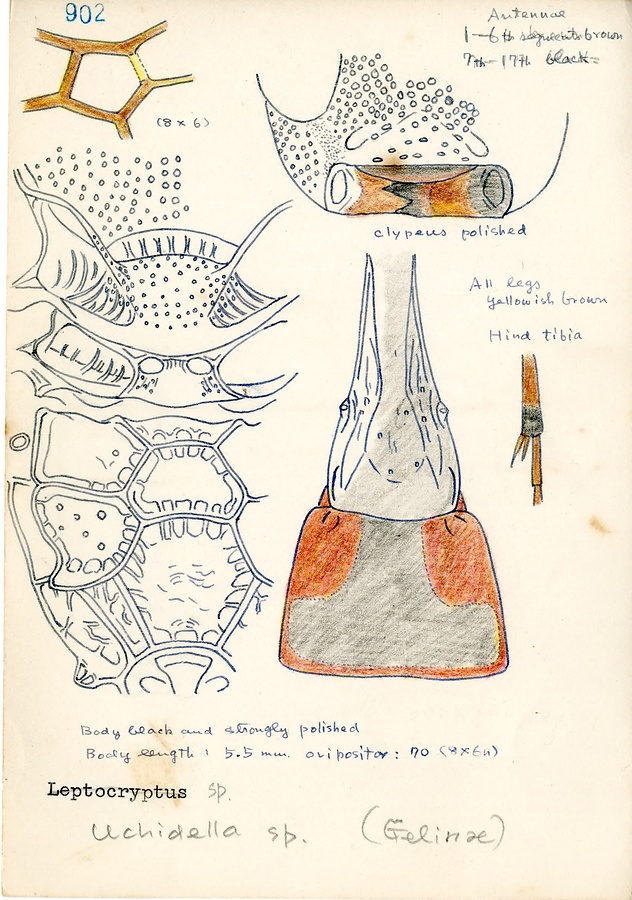 902
Antennae
1-6th segments brown
7th-17th black
(8×6)
clypeus polished
All legs
yellowish brown
Hind tibia
Body black and strongly polished
Body length: 5.5 mm. ovipositor: 70 (8×6n)
Leptocryptus sp.
Uchidella sp. (Gelinae)